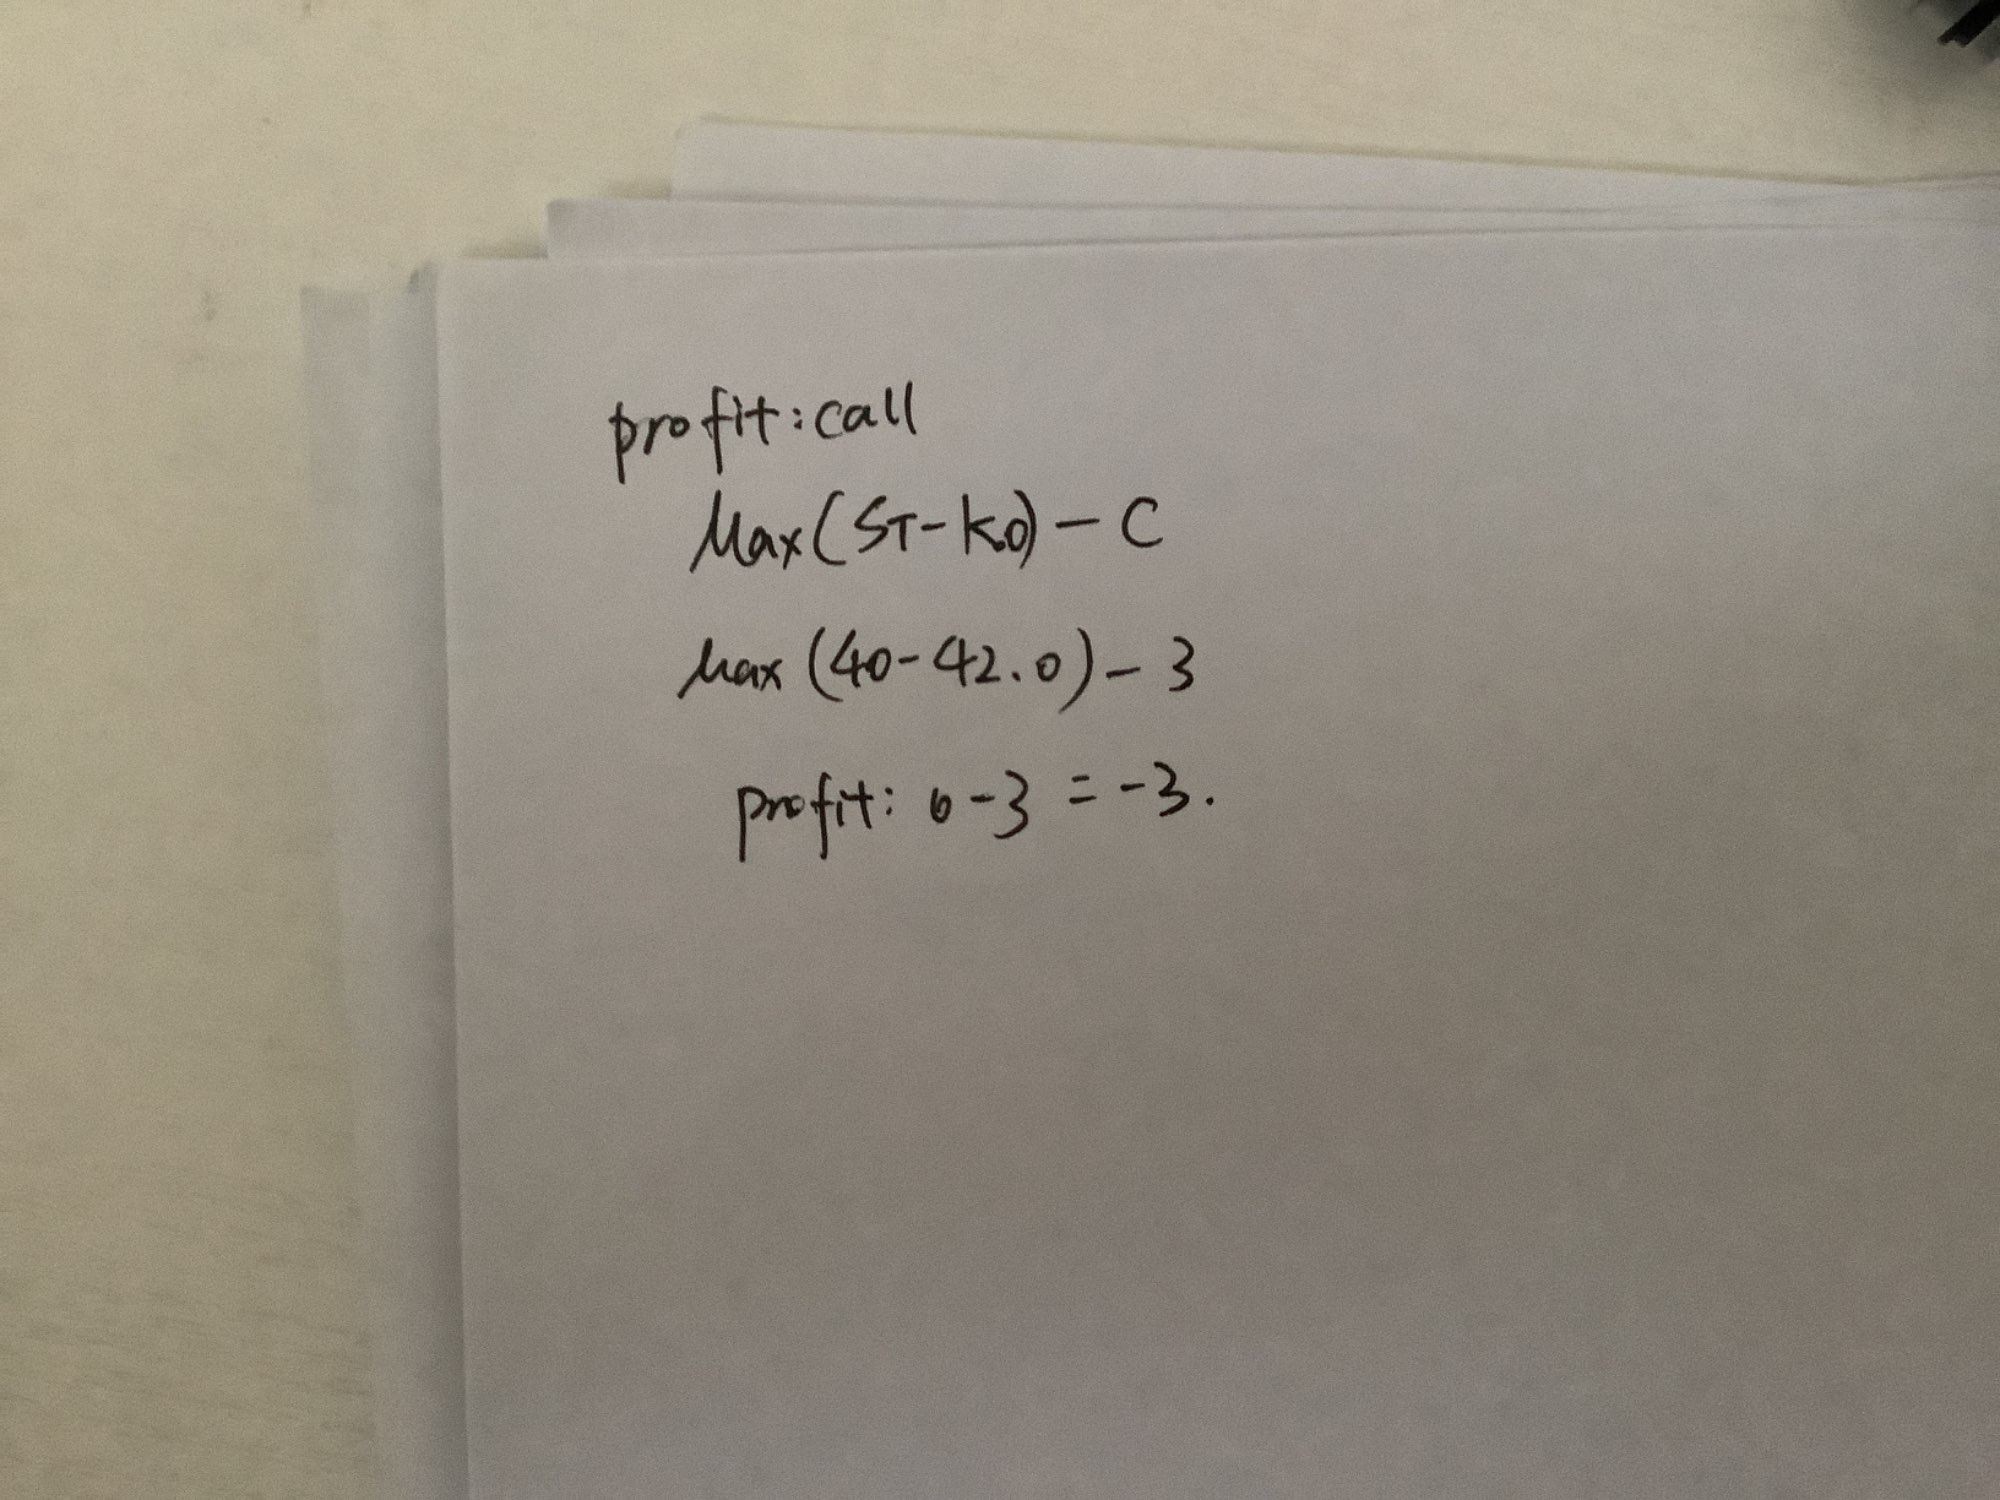 profit: call
Max(ST-K0) - C
Max (40-42.0) - 3
profit: 0-3 = -3.